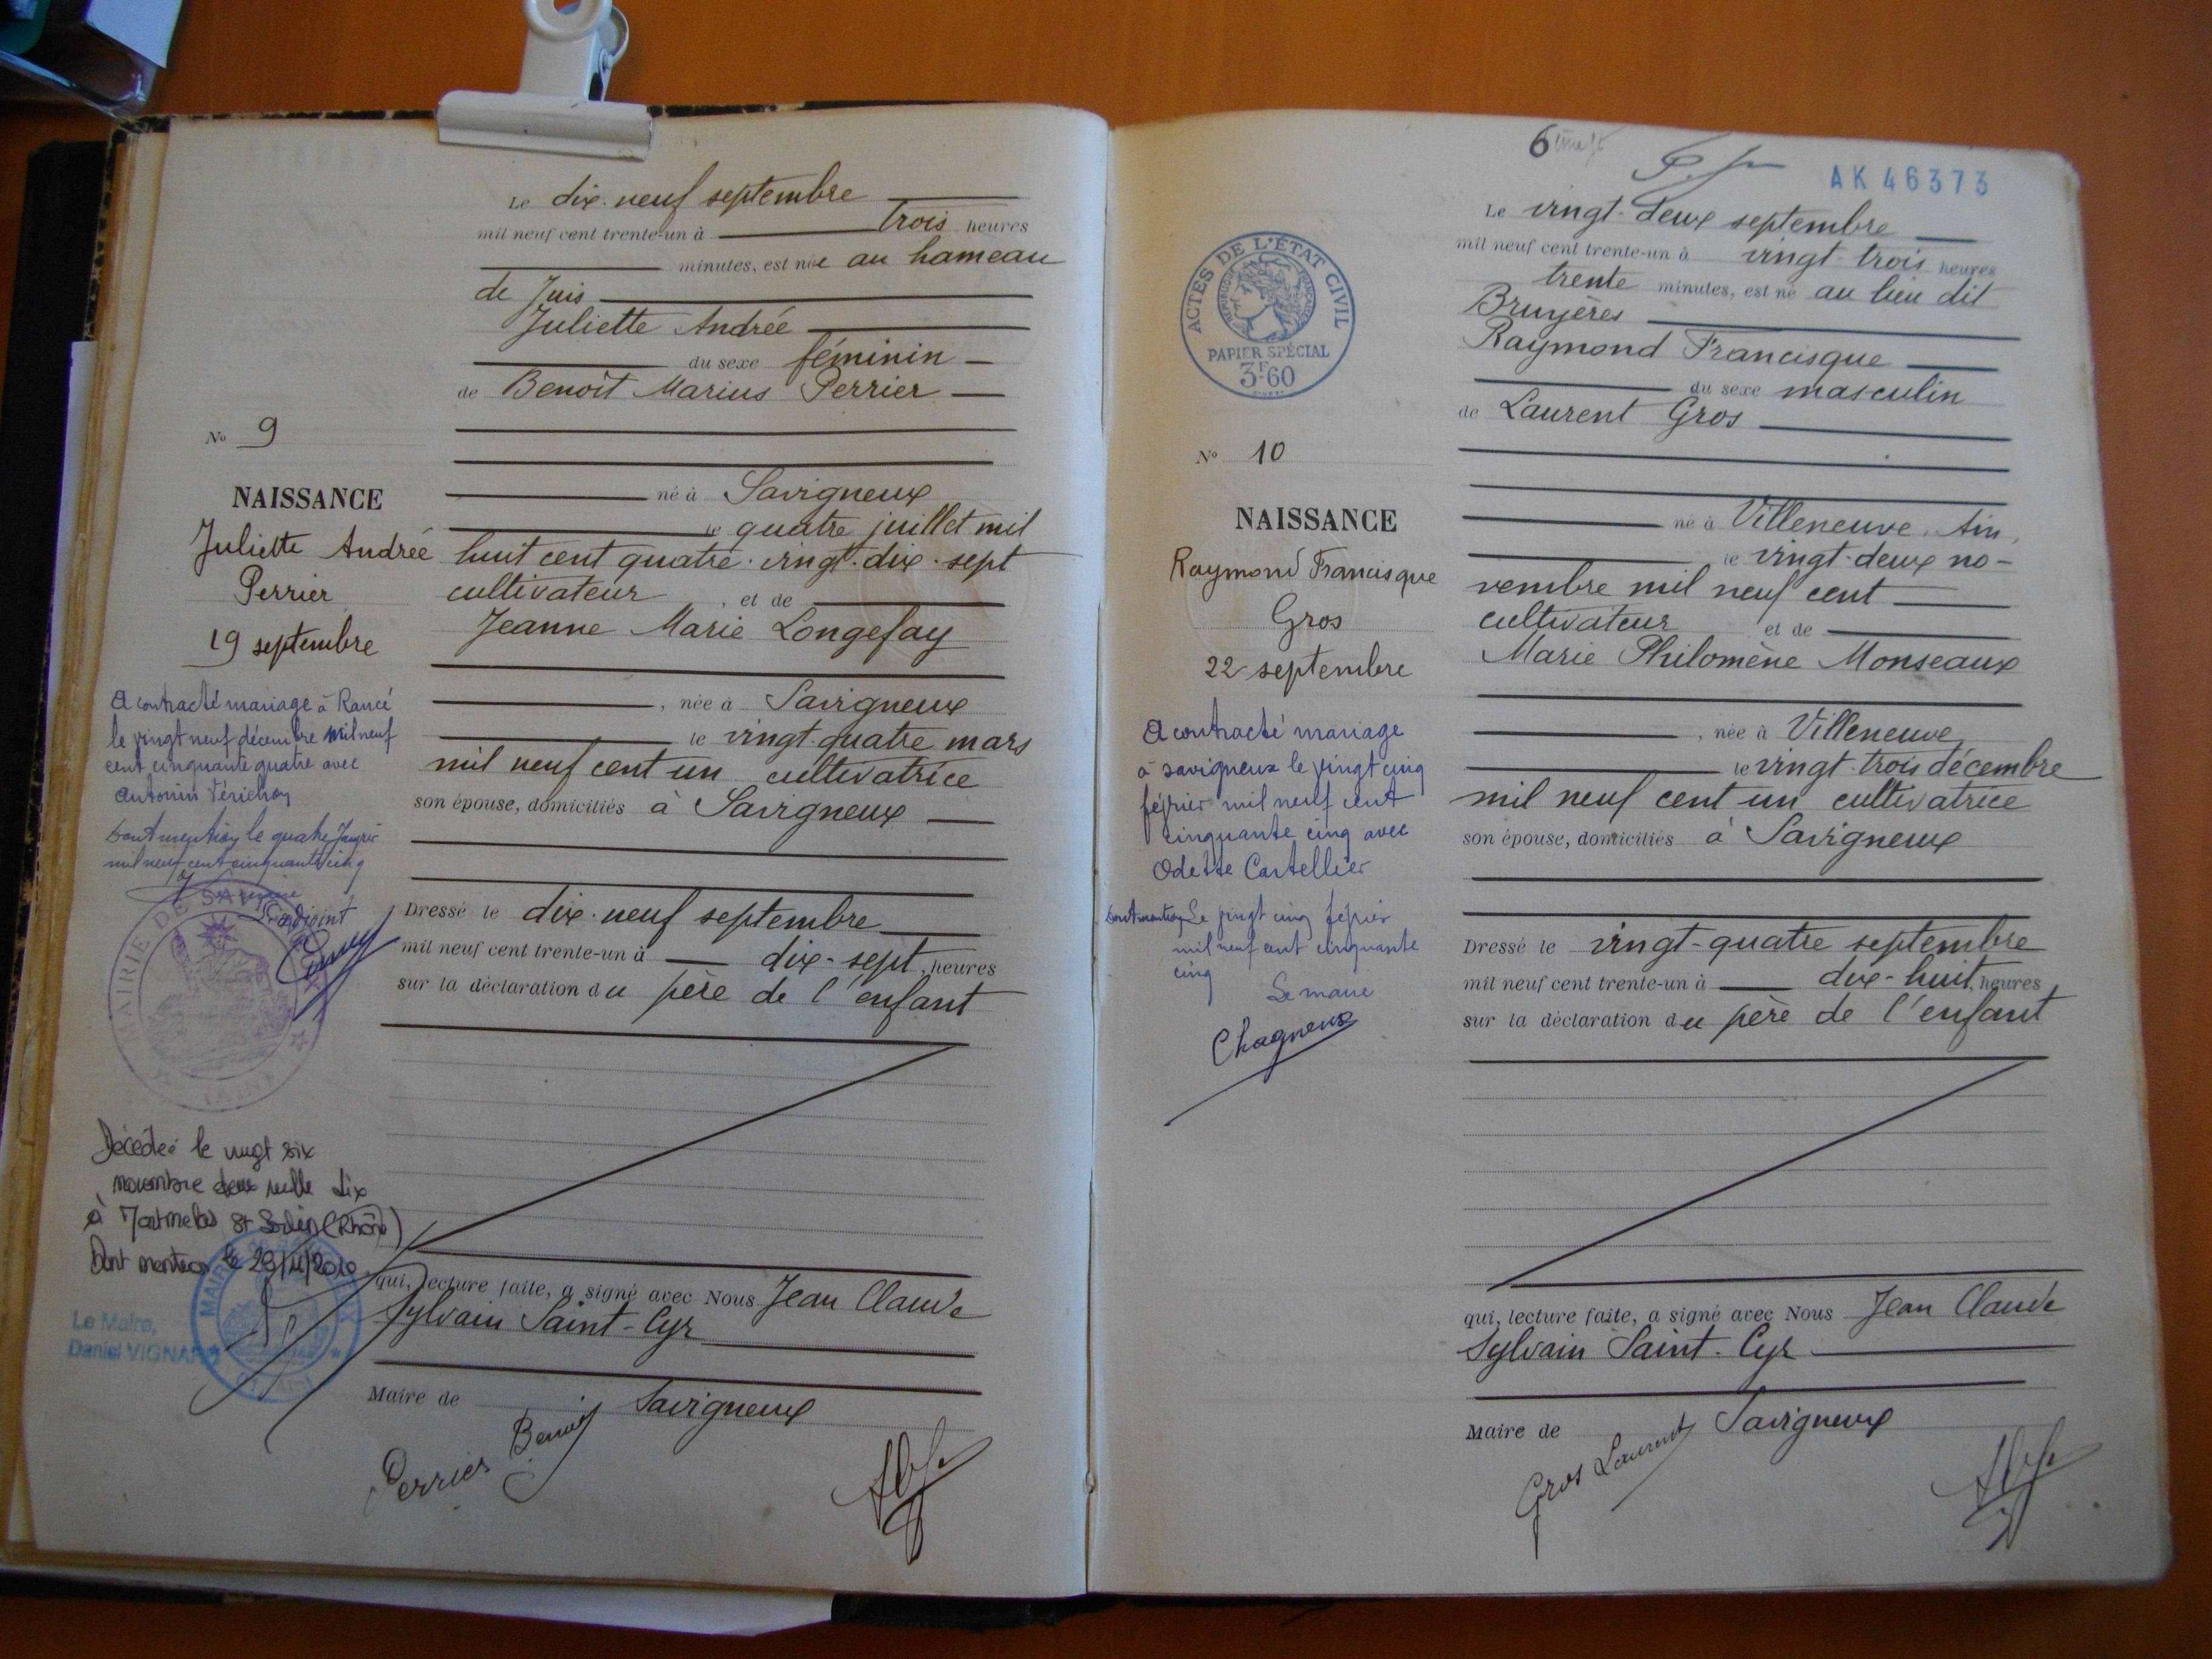 Le dix-neuf septembre
mil neuf cent trente-un à trois heures
minutes, est née au hameau
de Juis
Juliette Andrée
du sexe féminin
de Benoît Marius Perrier
né à Savigneux
le quatre juillet mil
huit cent quatre-vingt-dix-sept
cultivateur, et de
Jeanne Marie Longefay
, née à Savigneux
le vingt-quatre mars
mil neuf cent un cultivatrice
son épouse, domiciliés à Savigneux
Dressé le dix-neuf septembre
mil neuf cent trente-un à dix-sept heures
sur la déclaration du père de l'enfant
qui, lecture faite, a signé avec Nous Jean Claude
Sylvain Saint-Cyr
Maire de Savigneux
Perrier Benoit
No 9
NAISSANCE
Juliette Andrée
Perrier
19 septembre
A contracté mariage à Rancé
le vingt neuf décembre mil neuf
cent cinquante quatre avec
Antonin
Dont mention le quatre Janvier
mil neuf cent cinquante cinq
L'adjoint
MAIRIE DE
Décédée le vingt six
novembre deux mille dix
à St (Rhône)
Dont mention le 29/11/2010
Le Maire,
Daniel VIGNARD
MAIRIE
6
AK 46373
Le vingt-deux septembre
mil neuf cent trente-un à vingt-trois heures
trente minutes, est né au lieu dit
Bruyères
Raymond Francisque
du sexe masculin
de Laurent Gros
né à Villeneuve, Ain,
le vingt-deux no-
vembre mil neuf cent
cultivateur et de
Marie Philomène Monseaux
, née à Villeneuve
le vingt-trois décembre
mil neuf cent un cultivatrice
son épouse, domiciliés à Savigneux
Dressé le vingt-quatre septembre
mil neuf cent trente-un à dix-huit heures
sur la déclaration du père de l'enfant
qui, lecture faite, a signé avec Nous Jean Claude
Sylvain Saint-Cyr
Maire de Savigneux
Gros Laurent
ACTES DE L'ÉTAT CIVIL
RÉPUBLIQUE FRANÇAISE
PAPIER SPÉCIAL
3F.60
No 10
NAISSANCE
Raymond Francisque
Gros
22 septembre
A contracté mariage
à savigneux le vingt cinq
février mil neuf cent
cinquante cinq avec
Odette Cartellier
Dont mention Le vingt cinq février
mil neuf cent cinquante
cinq
Le maire
Chagneux